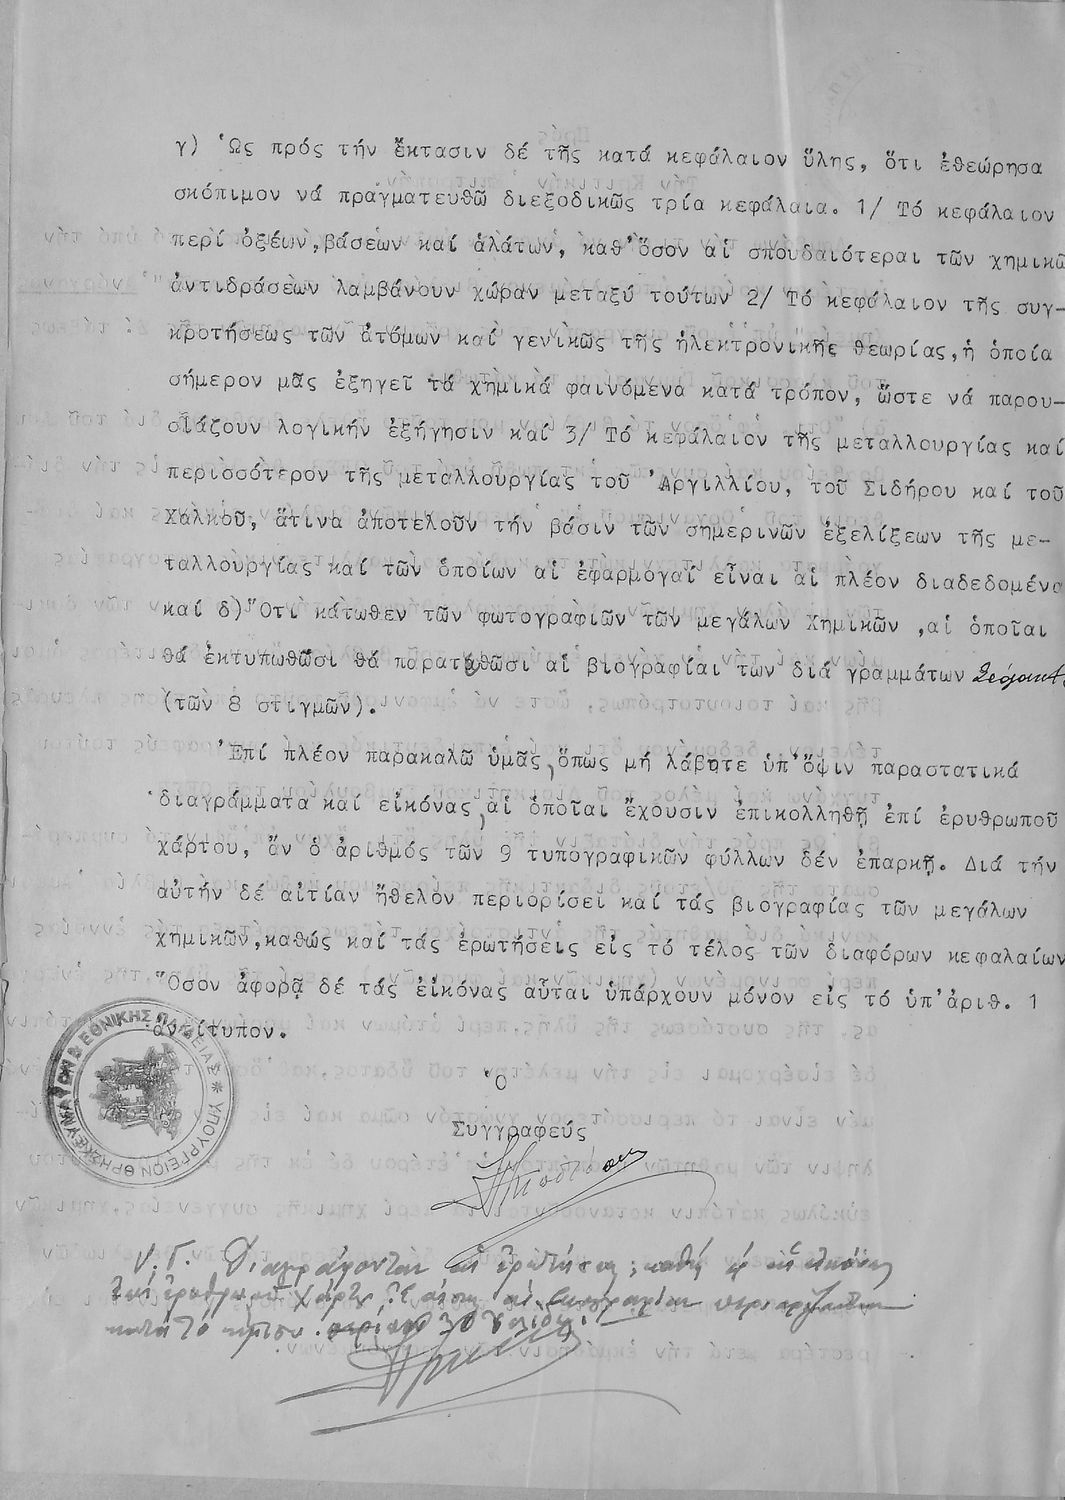 γ) Ὡς πρός τήν ἔκτασιν δέ τῆς κατά κεφάλαιον ὕλης, ὅτι ἐθεώρησα
σκόπιμον νά πραγματευθῶ διεξοδικῶς τρία κεφάλαια. 1/ Τό κεφάλαιον
περί ὀξέων,βάσεων καί ἁλάτων, καθ'ὅσον αἱ σπουδαιότεραι τῶν χημικῶ
ἀντιδράσεων λαμβάνουν χώραν μεταξύ τούτων 2/ Τό κεφάλαιον τῆς συγ-
κροτήσεως τῶν ἀτόμων καί γενικῶς τῆς ἠλεκτρονικῆς θεωρίας,ἡ ὁποία
σήμερον μᾶς ἐξηγεῖ τά χημικά φαινόμενα κατά τρόπον, ὥστε νά παρου-
σιάζουν λογικήν ἐξήγησιν καί 3/ Τό κεφάλαιον τῆς μεταλλουργίας καί
περισσότερον τῆς μεταλλουργίας τοῦ Ἀργιλλίου, τοῦ Σιδήρου καί τοῦ
Χαλκοῦ, ἅτινα ἀποτελοῦν τήν βάσιν τῶν σημερινῶν ἐξελίξεων τῆς με-
ταλλουργίας καί τῶν ὁποίων αἱ ἐφαρμογαί εἶναι αἱ πλέον διαδεδομένα
καί δ)Ὅτι κάτωθεν τῶν φωτογραφιῶν τῶν μεγάλων Χημικῶν ,αἱ ὁποῖαι
θά ἐκτυπωθῶσι θά παρατεθῶσι αἱ βιογραφίαι των διά γραμμάτων
(τῶν 8 στιγμῶν).
Ἐπί πλέον παρακαλῶ ὑμᾶς, ὅπως μή λάβητε ὑπ'ὄψιν παραστατικά
διαγράμματα καί εἰκόνας, αἱ ὁποῖαι ἔχουσιν ἐπικολληθῇ ἐπί ἐρυθρωποῦ
χάρτου, ἄν ὁ ἀριθμός τῶν 9 τυπογραφικῶν φύλλων δέν ἐπαρκῇ. Διά τήν
αὐτήν δέ αἰτίαν ἤθελον περιορίσει καί τάς βιογραφίας τῶν μεγάλων
χημικῶν,καθώς καί τάς ἐρωτήσεις εἰς τό τέλος τῶν διαφόρων κεφαλαίων
Ὅσον ἀφορᾷ δέ τάς εἰκόνας αὗται ὑπάρχουν μόνον εἰς τό ὑπ'ἀριθ. 1
ἀντίτυπον.
Ὁ
Συγγραφεύς
ΥΠΟΥΡΓΕΙΟΝ ΘΡΗΣΚΕΥΜΑΤΩΝ & ΕΘΝΙΚΗΣ ΠΑΙΔΕΙΑΣ
Διαγράφονται αἱ ἐρωτήσεις, καθώς αἱ εἰκόνες
χάρτου αἱ βιογραφίαι
κατά τό ἥμισυ.